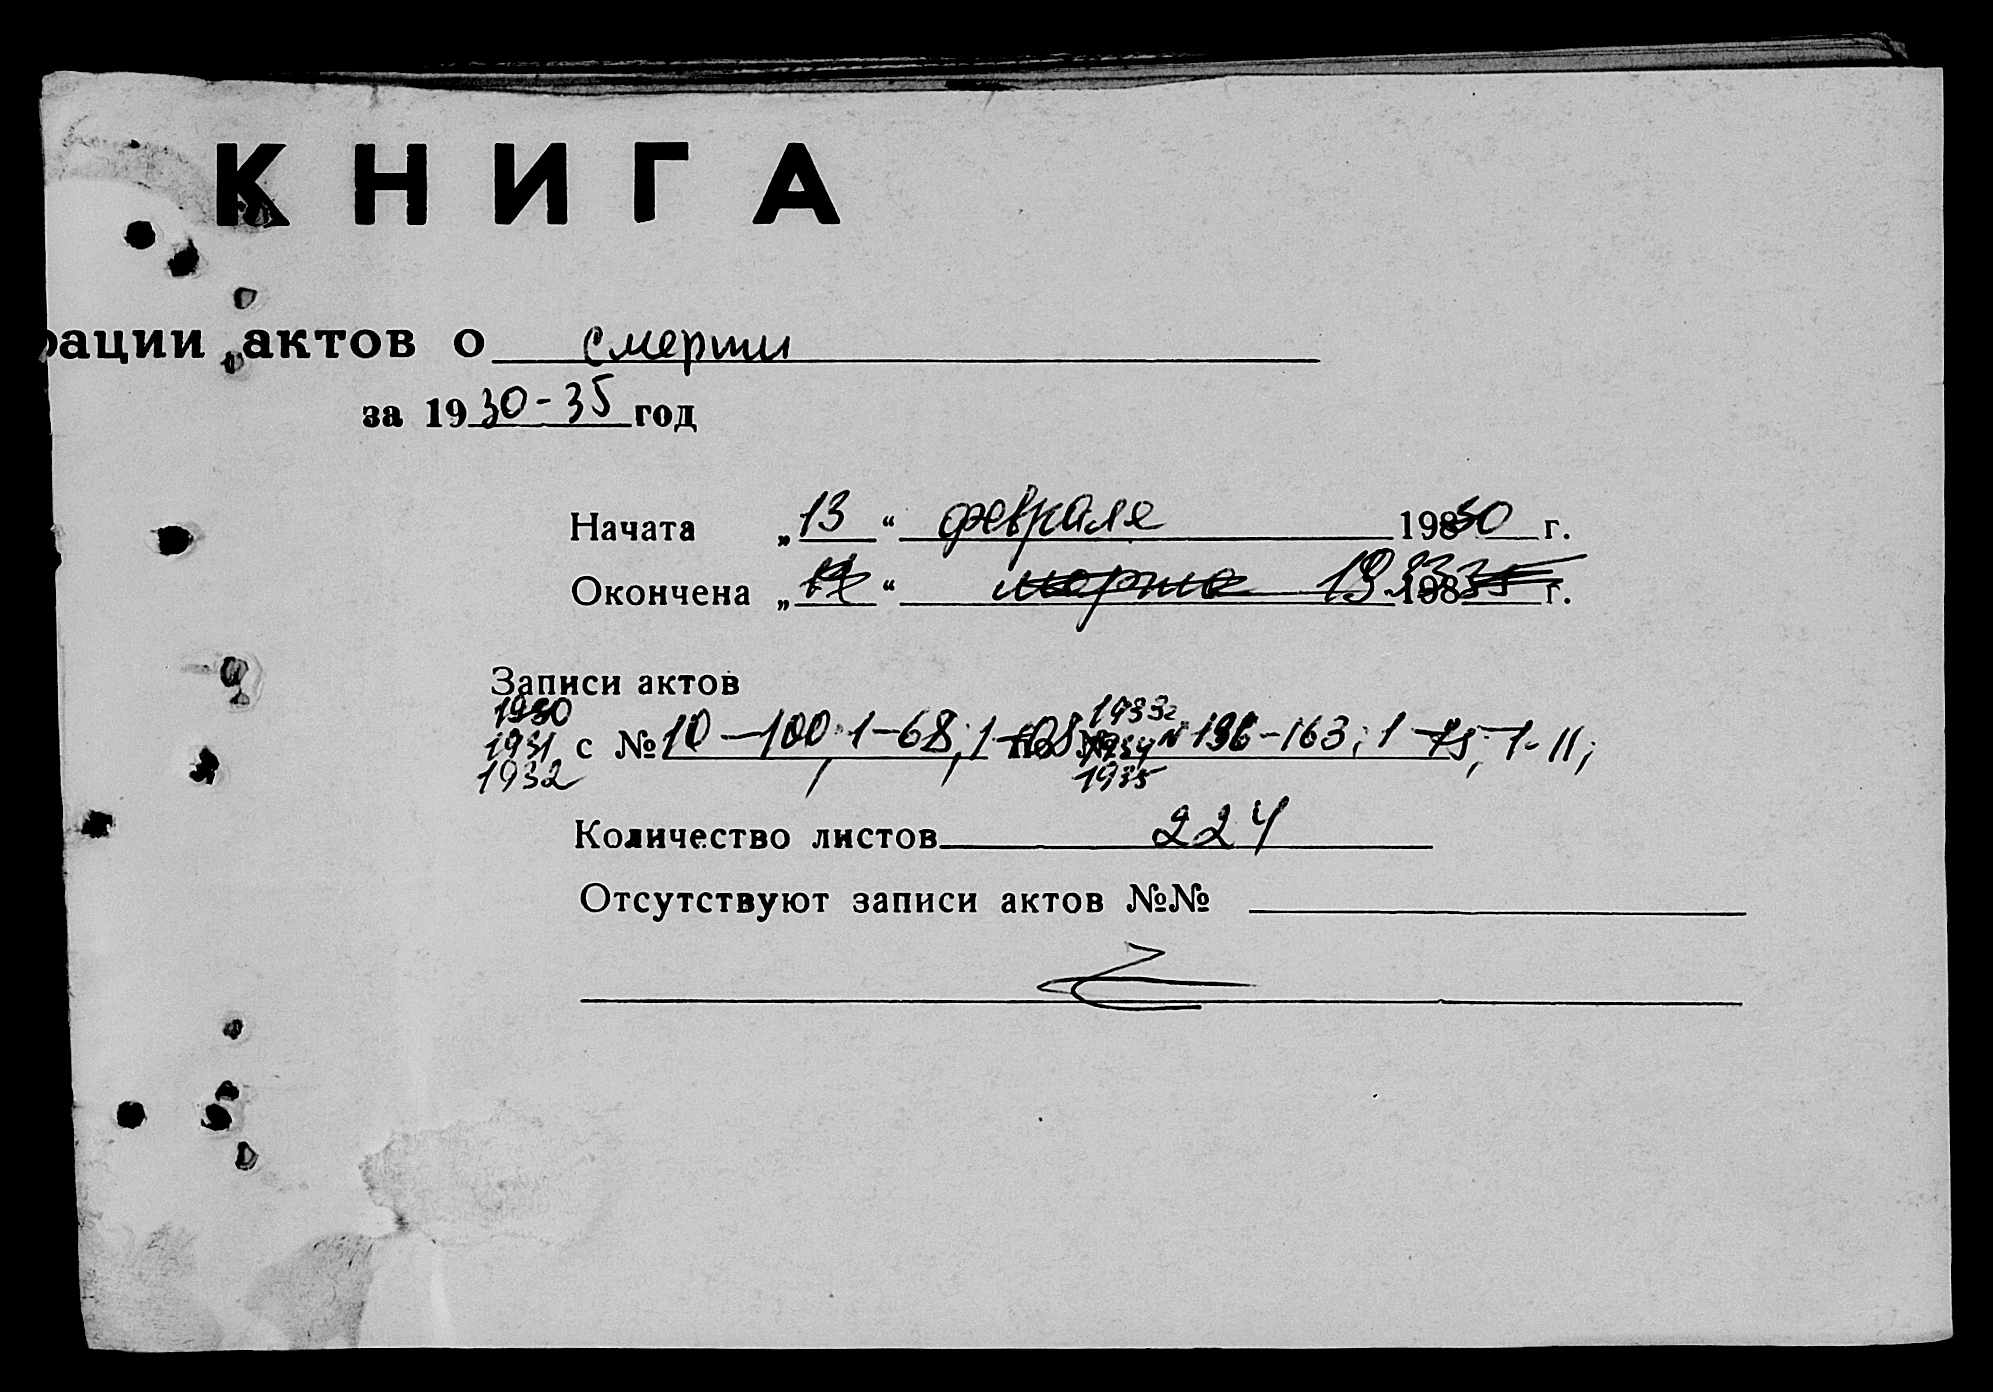 КНИГА
рации актов о смерти
за 1930-35 год
Начата „13“ февраля 1930 г.
Окончена „ “ марта 19 35 г.
Записи актов
1930 1933г
1931 с № 10-100; 1-68; 1-108 по № 1934 № 136-163; 1-75; 1-11;
1932 1935
Количество листов 224
Отсутствуют записи актов №№